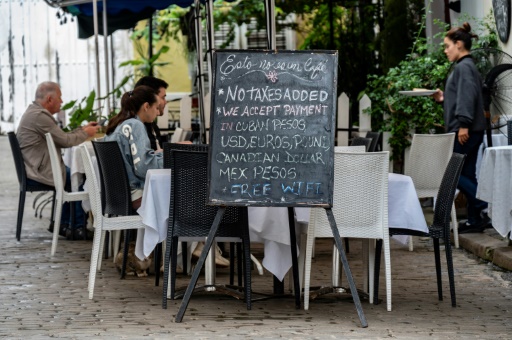 Esto no es un Café
* NO TAXES ADDED
* WE ACCEPT PAYMENT
IN CUBAN PESOS
USD, EUROS, P. UNI
CANADIAN DOLLAR
MEX PESOS
+ FREE WIFI